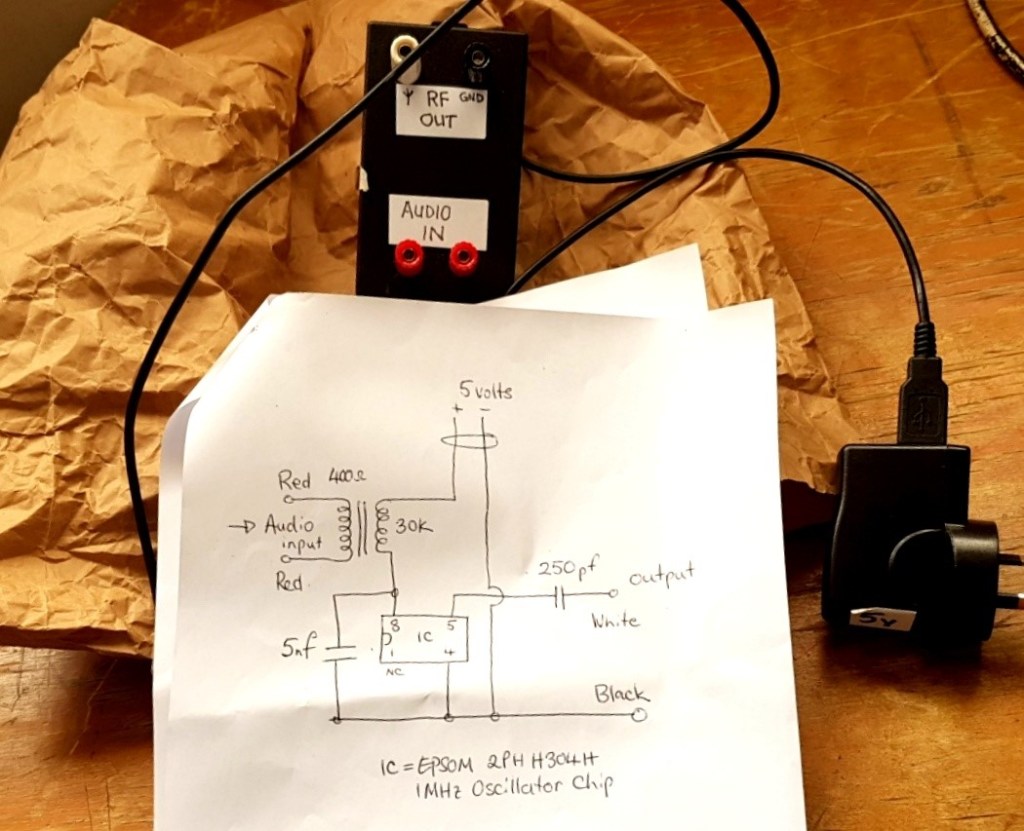 Y RF GND
OUT
AUDIO
IN
5 volts
+ -
Red 400Ω
Audio
input
Red.
30K
250pf
output
White
8 5
IC
1 4
NC
5nf
Black
5V
IC = EPSOM 2PH H304H
1MHz Oscillator Chip